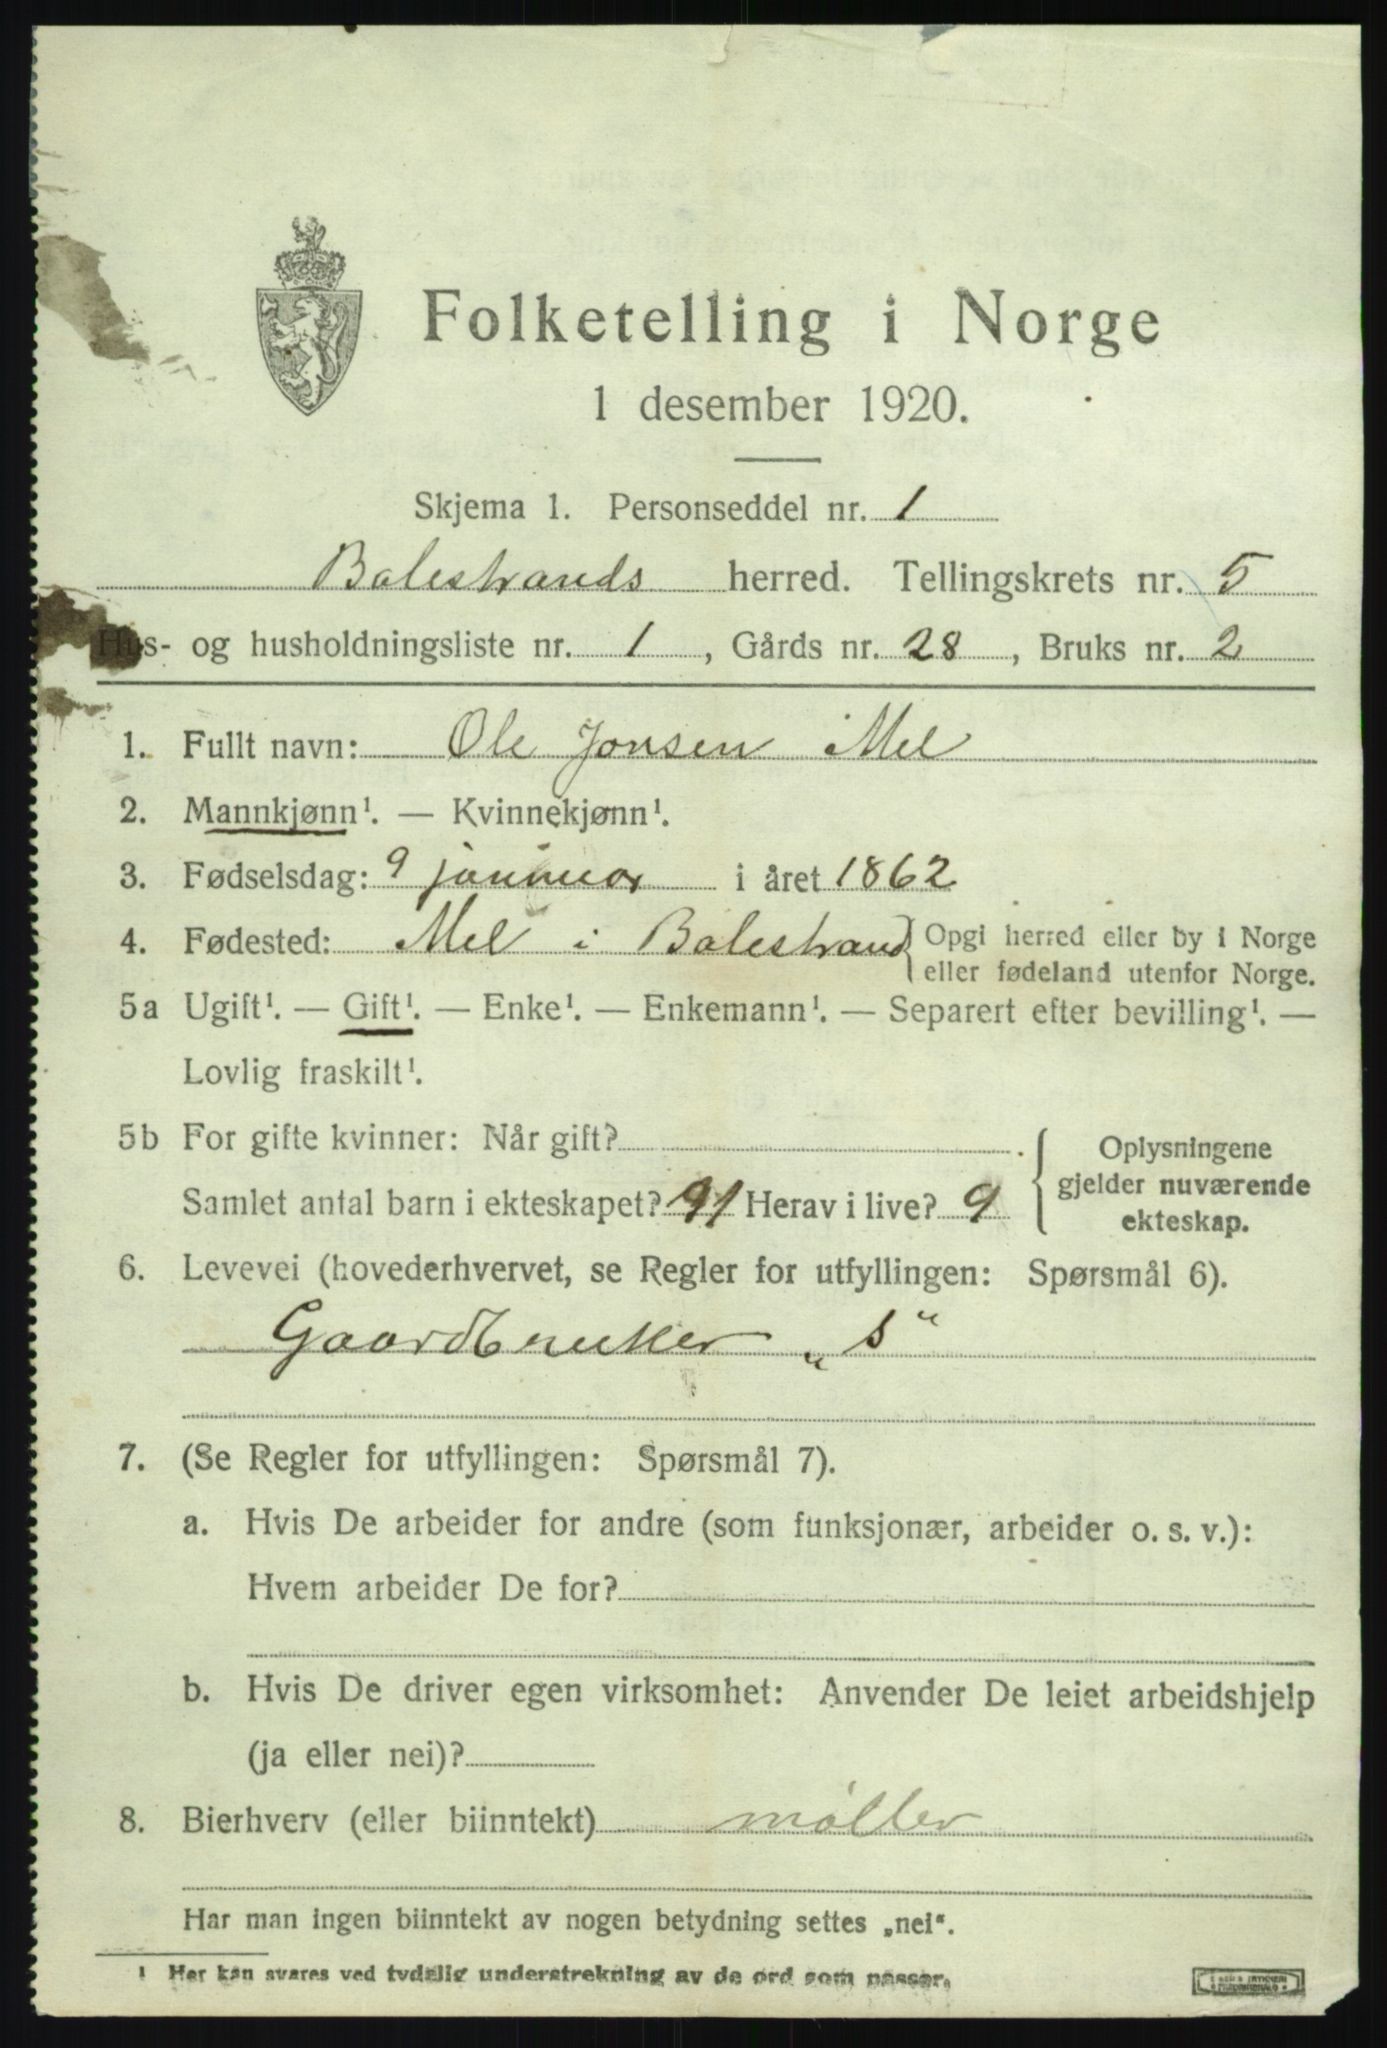 Folketelling i Norge
1 desember 1920.
Skjema 1. Personseddel nr. 1
Balestrands herred. Tellingskrets nr. 5
Hus- og husholdningsliste nr. 1, Gårds nr. 28, Bruks nr. 2
1. Fullt navn: Ole Jonsen Mel
2. Mannkjønn¹. — Kvinnekjønn¹.
3. Fødselsdag: 9 januar i året 1862
4. Fødested: Mel i Balestrand { Opgi herred eller by i Norge
eller fødeland utenfor Norge.
5a Ugift¹. — Gift¹. — Enke¹. — Enkemann¹. — Separert efter bevilling¹. —
Lovlig fraskilt¹.
5b For gifte kvinner: Når gift?
Samlet antal barn i ekteskapet? 11 Herav i live? 9
Oplysningene
gjelder nuværende
ekteskap.
6. Levevei (hovederhvervet, se Regler for utfyllingen: Spørsmål 6).
Gaardbruker „s“
7. (Se Regler for utfyllingen: Spørsmål 7).
a. Hvis De arbeider for andre (som funksjonær, arbeider o. s. v.):
Hvem arbeider De for?
b. Hvis De driver egen virksomhet: Anvender De leiet arbeidshjelp
(ja eller nei)?
8. Bierhverv (eller biinntekt) møller
Har man ingen biinntekt av nogen betydning settes „nei“.
¹ Her kan svares ved tydelig understrekning av de ord som passer.